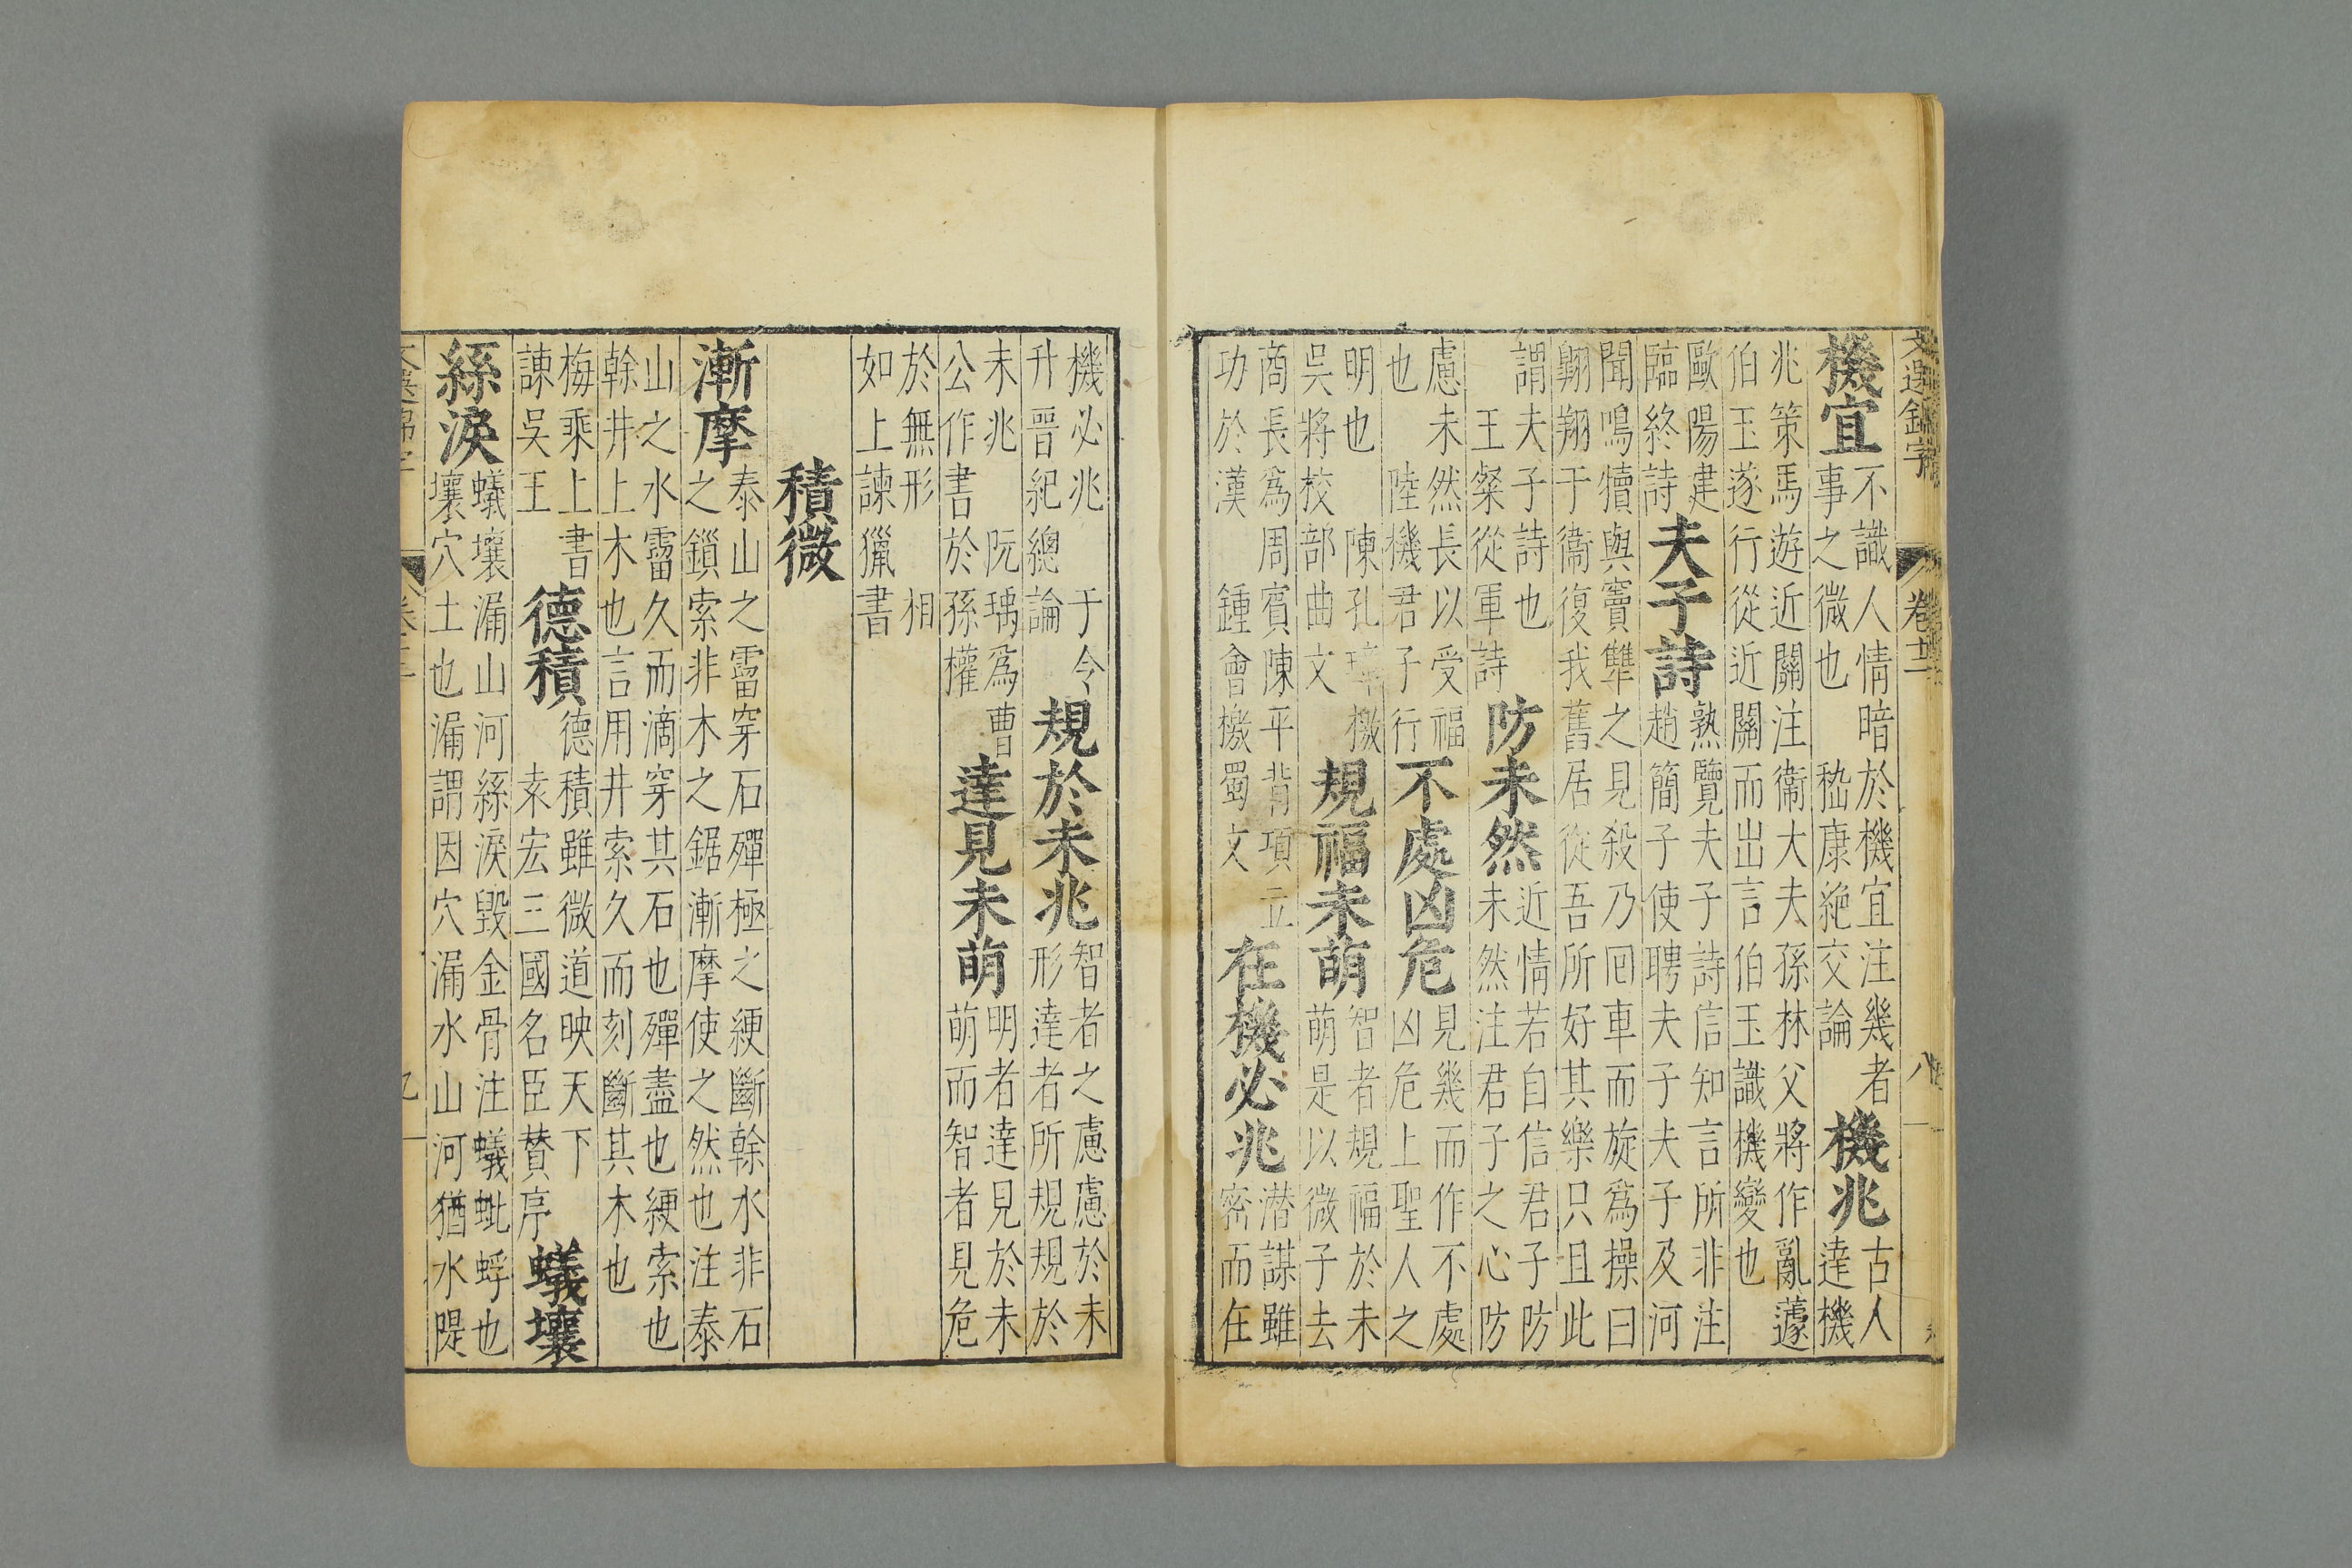 文選錦字 卷十二 八
機宜
不識人情暗於機宜注幾者
事之微也 嵇康絶交論
機兆
古人
達機
兆策馬遊近關注衛大夫孫林父將作亂蘧
伯玉遂行從近關而出言伯玉識機變也
歐陽建
臨終詩
夫子詩
熟覽夫子詩信知言所非注
趙簡子使聘夫子夫子及河
聞鳴犢與竇犨之見殺乃囘車而旋爲操曰
翺翔于衞復我舊居從吾所好其樂只且此
謂夫子詩也
王粲從軍詩
防未然
近情若自信君子防
未然注君子之心防
慮未然長以受福
也 陸機君子行
不處凶危
見幾而作不處
凶危上聖人之
明也 陳孔璋檄
吳將校部曲文
規福未萌
智者規福於未
萌是以微子去
商長爲周賓陳平背項立
功於漢 鍾會檄蜀文
在機必兆
潜謀雖
密而在
機必兆 于令
升晉紀總論
規於未兆
智者之慮慮於未
形達者所規規於
未兆 阮瑀爲曹
公作書於孫權
達見未萌
明者達見於未
萌而智者見危
於無形 相
如上諫獵書
積微
漸摩
泰山之霤穿石殫極之綆斷幹水非石
之鎖索非木之鋸漸摩使之然也注泰
山之水霤久而滴穿其石也殫盡也綆索也
幹井上木也言用井索久而刻斷其木也
梅乘上書
諫吳王
德積
德積雖微道映天下
袁宏三國名臣賛序
蟻壤
絲淚
蟻壤漏山河絲淚毀金骨注蟻蚍蜉也
壤穴土也漏謂因穴漏水山河猶水隄